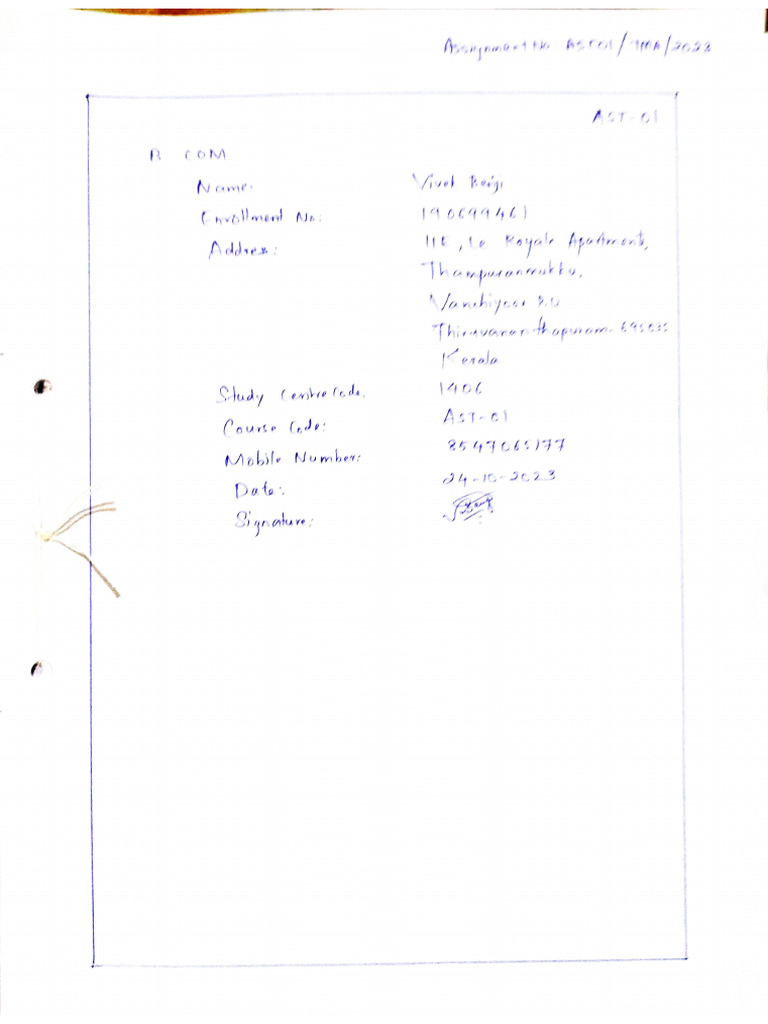 Assignment No AST01/TMA/2023
AST-01
B COM
Name: Vivek
Enrollment No: 190699461
Address: 11E, Le Royale Apartments,
Thampuranmukku,
Vanchiyoor P.O
Thiruvananthapuram-695035
Kerala
Study Centre Code: 1406
Course Code: AST-01
Mobile Number: 8547065177
Date: 24-10-2023
Signature: